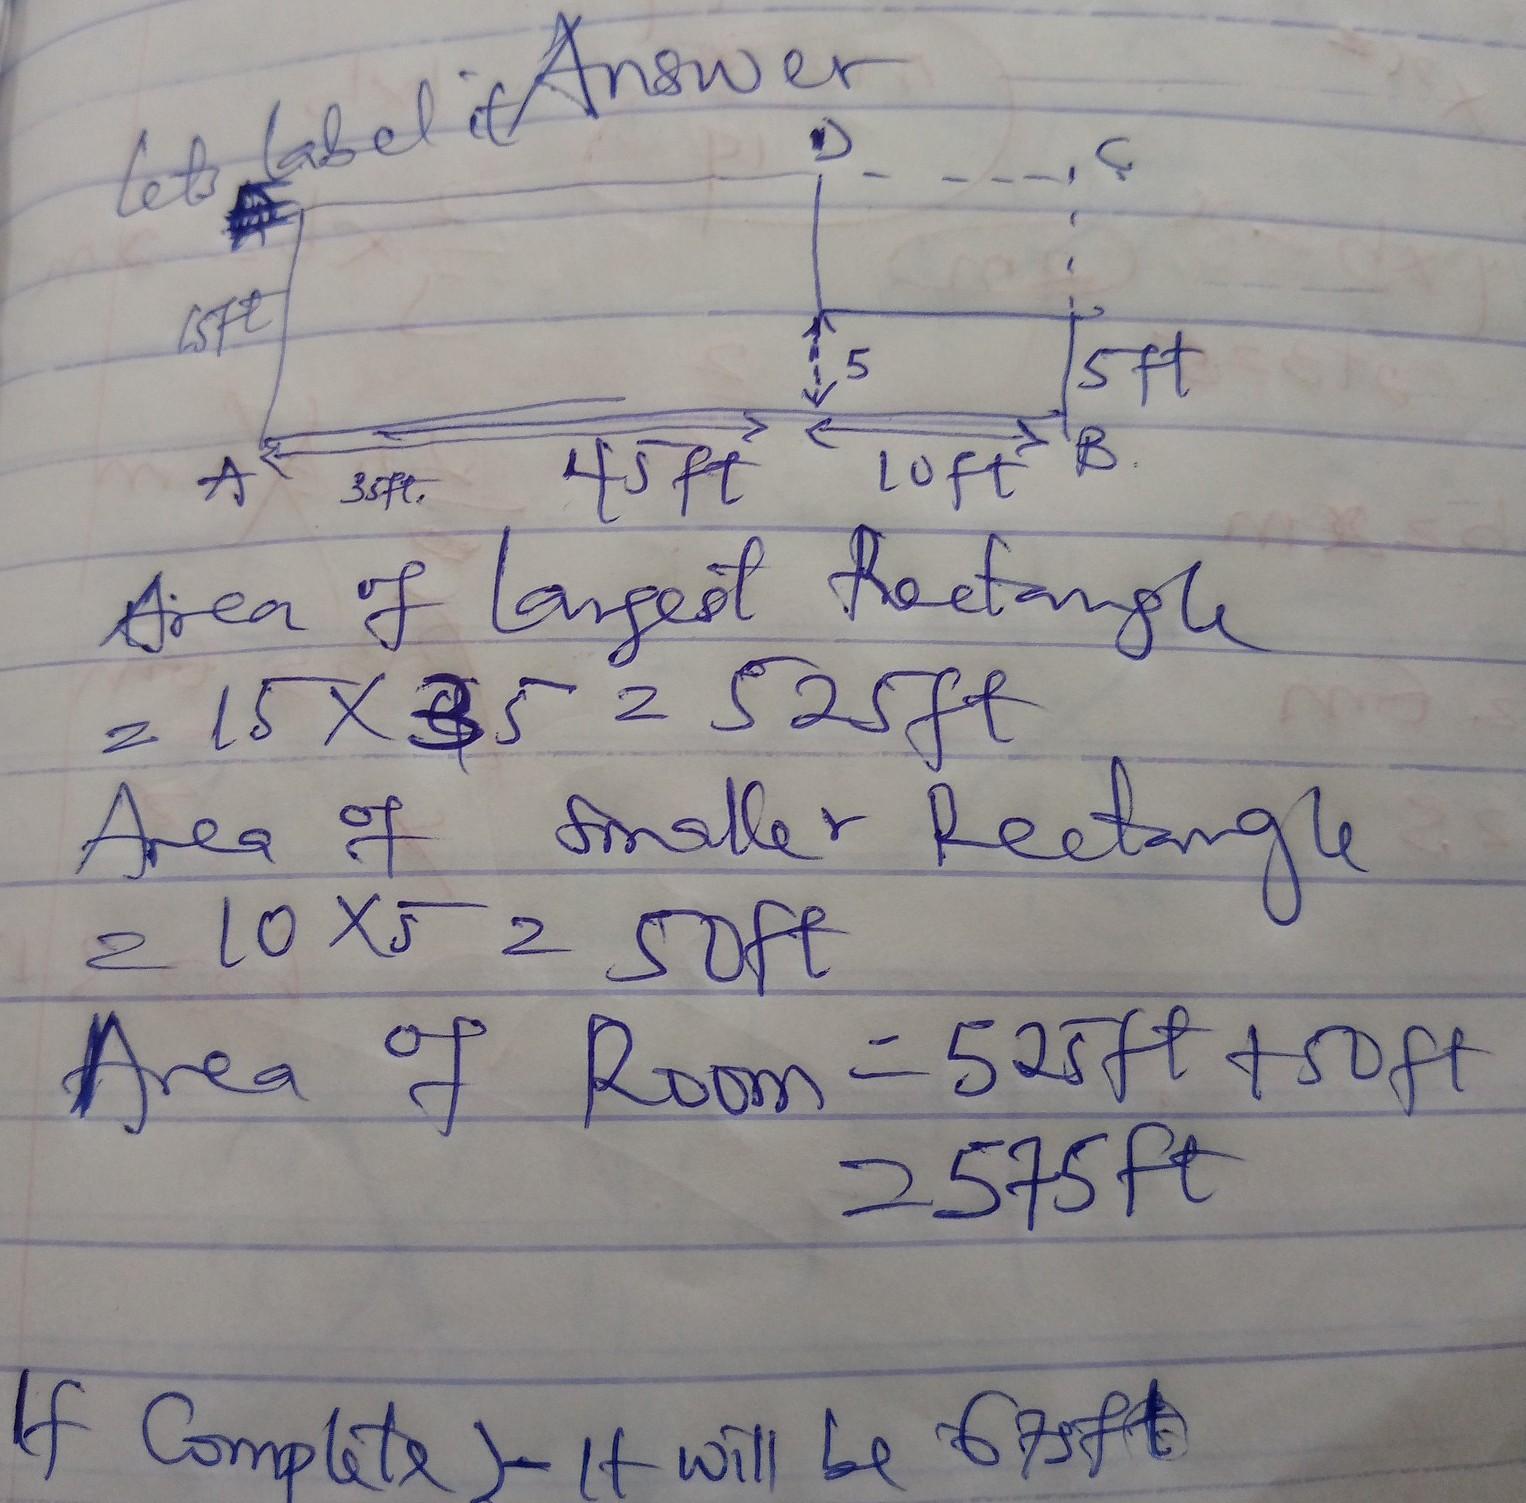 Answer
Lets label it
D C
15ft
5 5ft
A 35ft. 45ft 10ft B.
Area of Largest Rectangle
= 15 X 35 = 525ft
Area of Smaller Rectangle
= 10 X5 = 50ft
Area of Room = 525ft +50ft
= 575ft
If Complete)- It will be 675ft